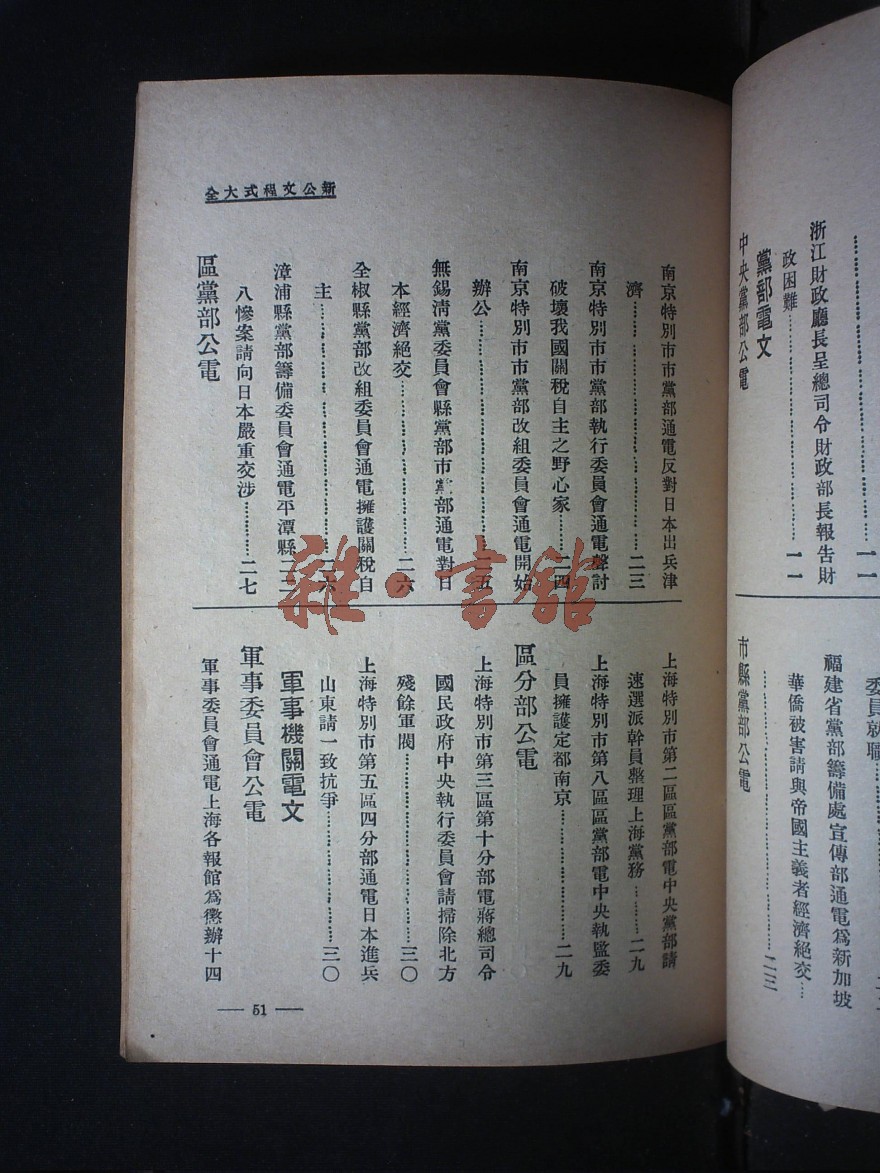 新公文程式大全
南京特別市市黨部通電反對日本出兵津
濟……………………………二三
南京特別市市黨部執行委員會通電聲討
破壞我國關稅自主之野心家………二四
南京特別市市黨部改組委員會通電開始
辦公…………………………二五
無錫清黨委員會縣黨部市黨部通電對日
本經濟絕交……………………二六
全椒縣黨部改組委員會通電擁護關稅自
主……………………………二六
漳浦縣黨部籌備委員會通電平潭縣二三
八慘案請向日本嚴重交涉…………二七
區黨部公電
上海特別市第二區區黨部電中央黨部請
速選派幹員整理上海黨務………二九
上海特別市第八區區黨部電中央執監委
員擁護定都南京…………………二九
區分部公電
上海特別市第三區第十分部電蔣總司令
國民政府中央執行委員會請掃除北方
殘餘軍閥……………………三〇
上海特別市第五區四分部通電日本進兵
山東請一致抗爭…………………三〇
軍事機關電文
軍事委員會公電
軍事委員會通電上海各報館為懲辦十四
— 51 —
……………………………一一
浙江財政廳長呈總司令財政部長報告財
政困難…………………………一一
黨部電文
中央黨部公電
委員就職
福建省黨部籌備處宣傳部通電為新加坡
華僑被害請與帝國主義者經濟絕交…
……………………………二三
市縣黨部公電
雜·書館